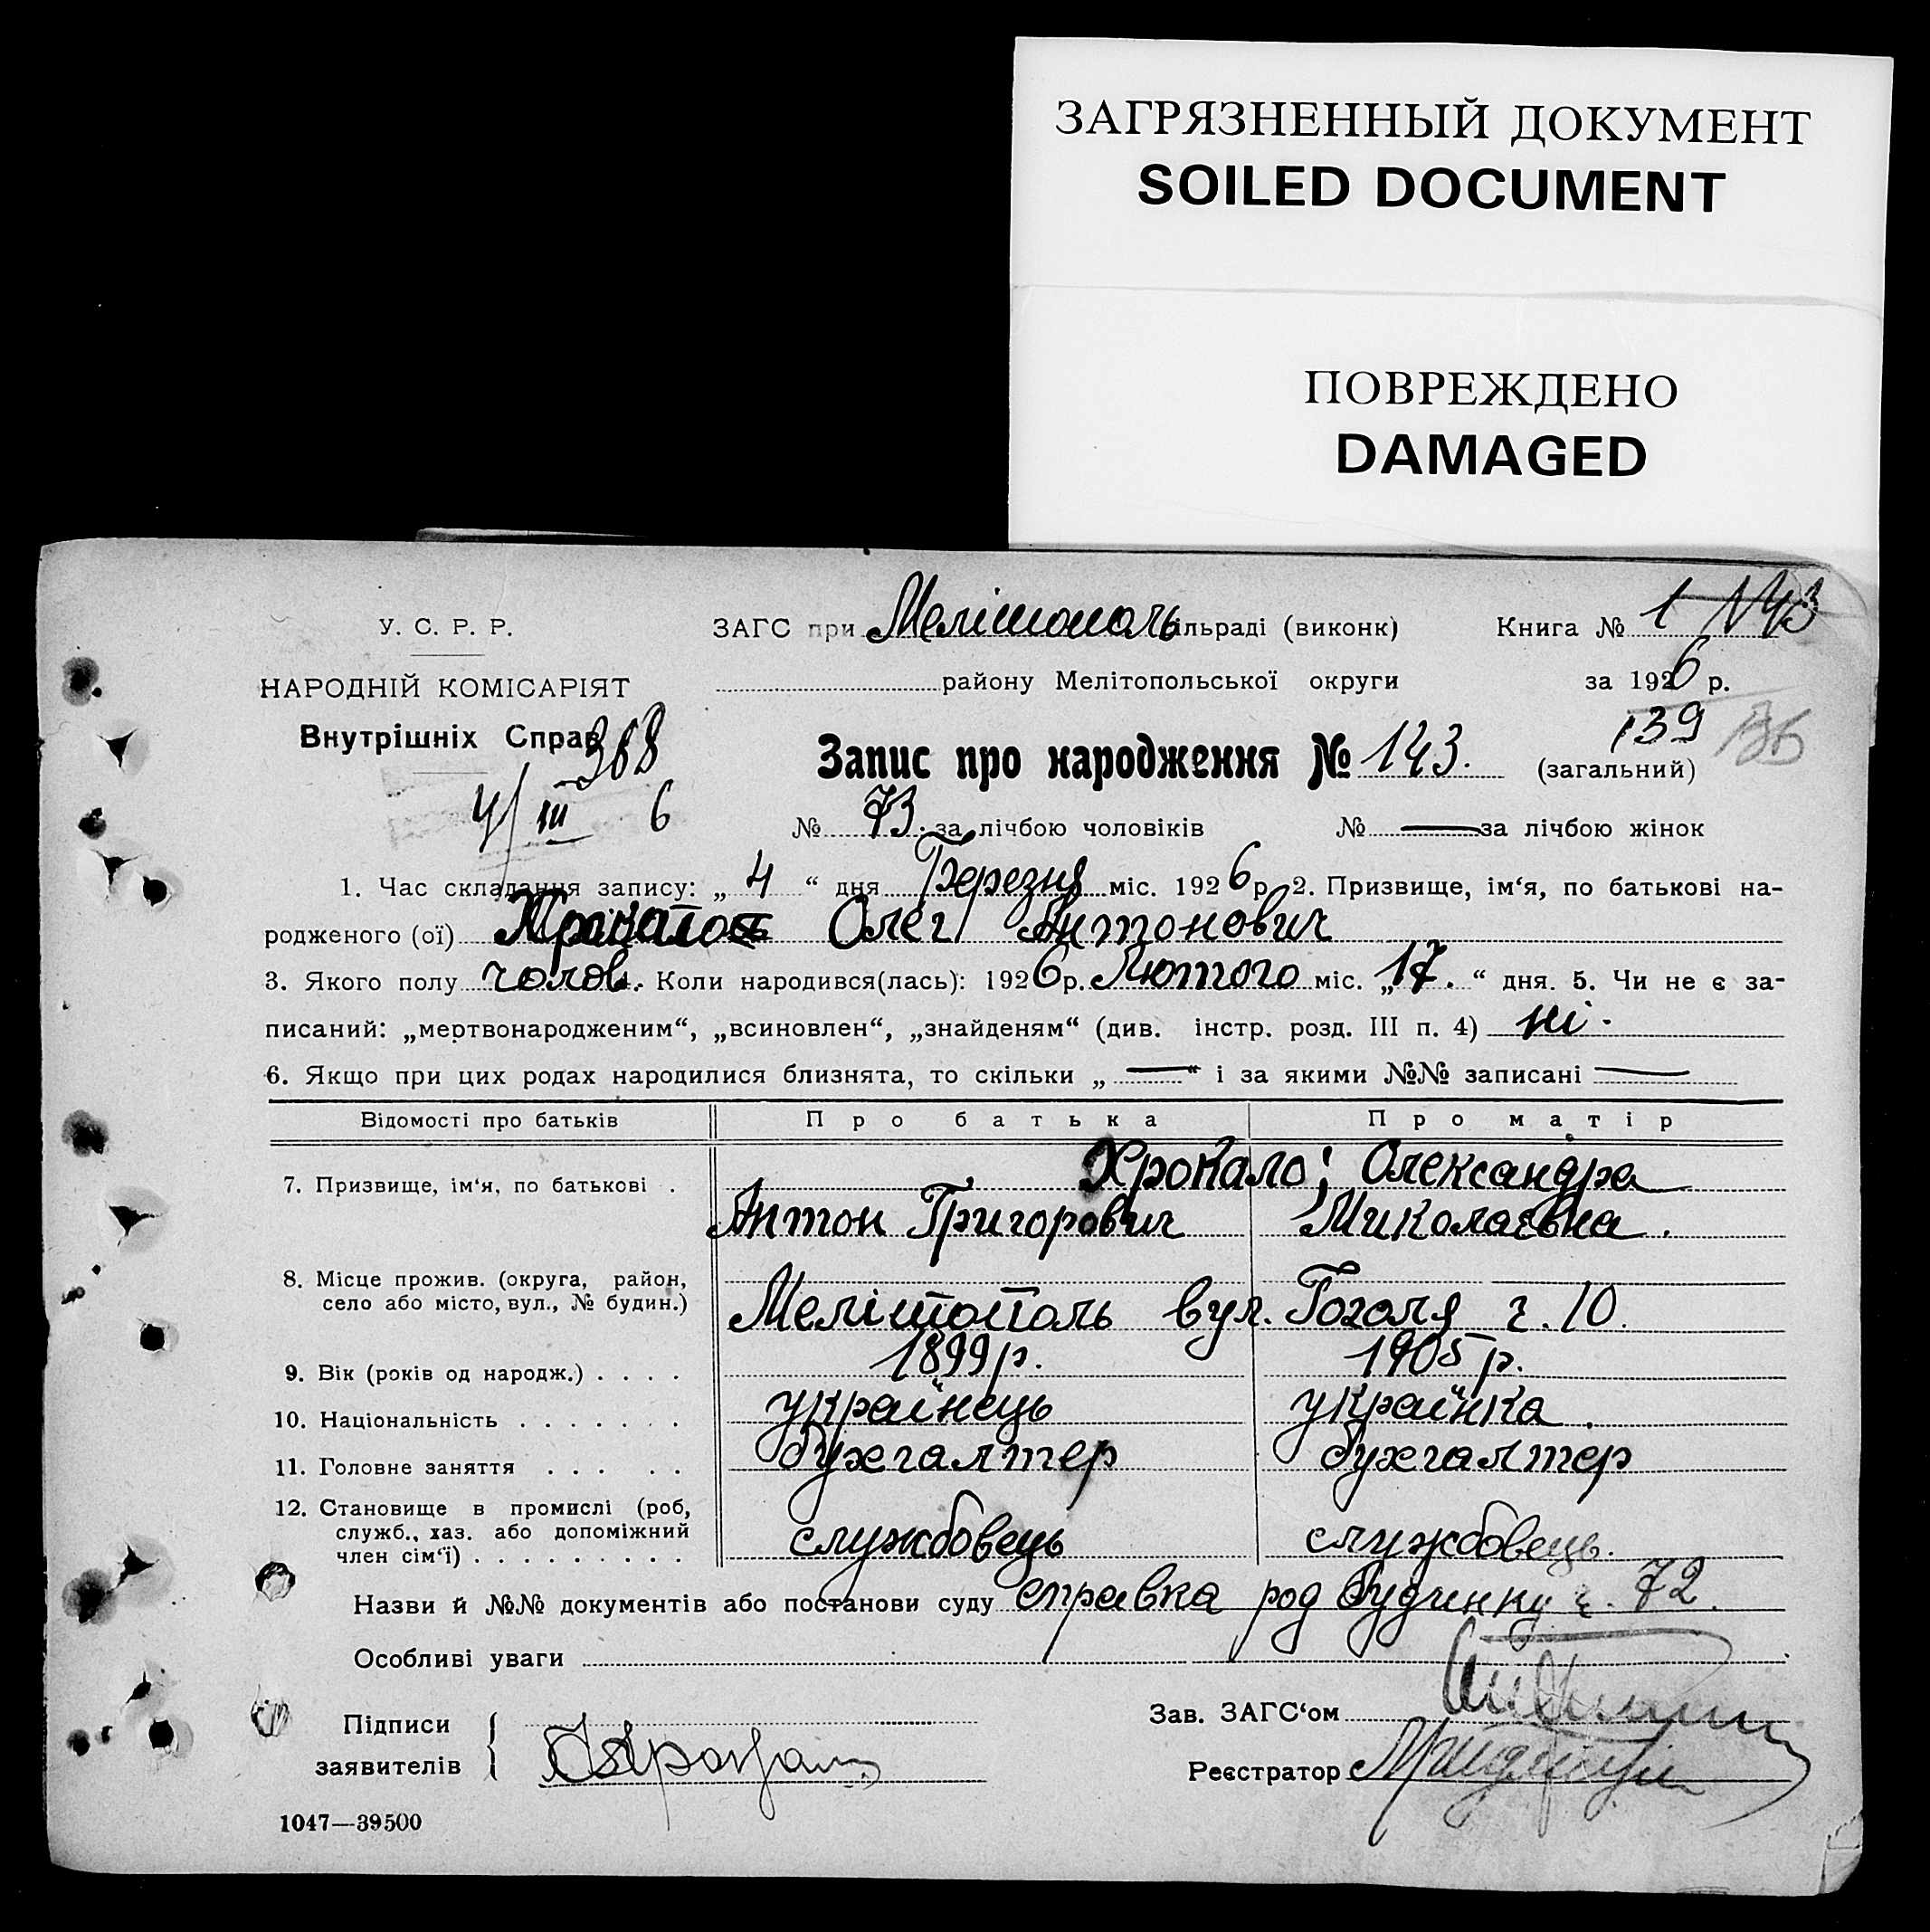 ЗАГРЯЗНЕННЫЙ ДОКУМЕНТ
SOILED DOCUMENT
ПОВРЕЖДЕНО
DAMAGED
У. С. Р. Р.
НАРОДНІЙ КОМІСАРІЯТ
Внутрішніх Справ
368
4/III 6
ЗАГС при Мелітополь ільраді (виконк) Книга № 1
району Мелітопольської округи за 1926 р.
139
Запис про народження № 143. (загальний)
№ 73. за лічбою чоловіків № — за лічбою жінок
1. Час складання запису: „ 4 “ дня Березня міс. 1926 р. 2. Призвище, ім‘я, по батькові на-
родженого (ої) Олег Антонович
3. Якого полу чолов. Коли народився(лась): 1926 р. Лютого міс. „ 17. “ дня. 5. Чи не є за-
писаний: „мертвонародженим“, „всиновлен“, „знайденям“ (див. інстр. розд. III п. 4) ні.
6. Якщо при цих родах народилися близнята, то скільки „ — “ і за якими №№ записані —
Відомості про батьків Про батька Про матір
7. Призвище, ім‘я, по батькові . Хропало; Олександра
Антон Григорович Миколаєвна.
8. Місце прожив. (округа, район,
село або місто, вул., № будин.) Мелітополь вул. Гоголя ч. 10.
9. Вік (років од народж.) . . . . 1899 р. 1905 р.
10. Національність . . . . . . . українець українка.
11. Головне заняття . . . . . бухгалтер бухгалтер
12. Становище в промислі (роб,
служб., хаз. або допоміжний
член сім‘ї) . . . . . . . . . службовець службовець.
Назви й №№ документів або постанови суду справка род будинку ч. 72.
Особливі уваги
Зав. ЗАГС‘ом
Підписи
заявителів
Реєстратор
1047—39500